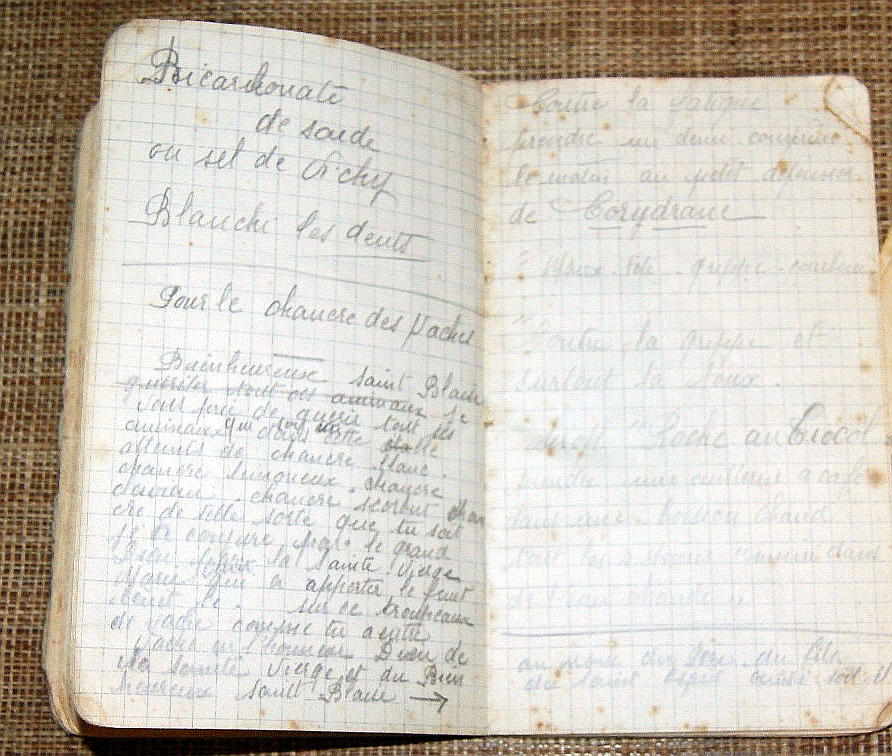 Bicarbonate
de soude
ou sel de Vichy
Blanchi les dents
Pour le chancre des Vaches
Bainheureux saint Blaise
guerison tout ces animaux je
vous prie de guerir tout les
animaux qui dans cette étable
atteints de chancre blanc.
chancre chancre
chancre
cre de telle sorte que tu soit
je te conjure par le grand
Dieu la Sainte Vierge
Marie qui a apporter le fruit
sur ce troupeaux
de vache comme tu a entre
Vache en l'honneur Dieu de
la Sainte Vierge et du Bien
heureux saint Blaise →
Contre la fatigue
prendre un demi comprimé
le matin au petit dejeuner
de Corydrane
Maux tête - grippe - courbatu
Contre la grippe et
surtout la toux.
Sirop "Roche au Tiocol
prendre une cuillerée a café
dans une boisson chaude
tout les heures dans
de l'eau chaude "
au nom du père du fils
du saint esprit ainsi soit il